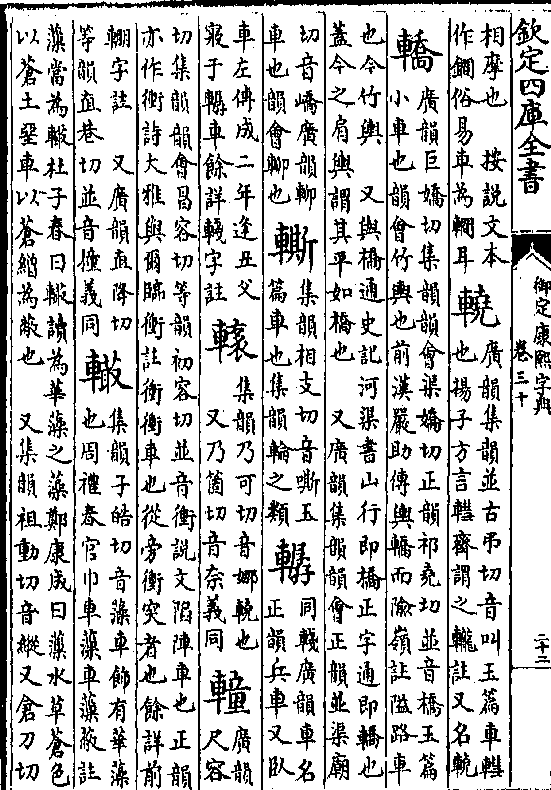 欽定四庫全書
御定康熙字典
卷三十
二十二
相摩也　按說文本作䡾俗易車為輣耳
轍
廣韻集韻並古弔切音叫玉篇車𨍋也揚子方言𨍋齊謂之𨏒註又名䡝
轎
廣韻巨嬌切集韻韻會渠嬌切正韻祁堯切並音橋玉篇小車也韻會竹輿也前漢嚴助傳輿轎而隃嶺註隘路車也今竹輿　又與橋通史記河渠書山行即橋正字通即轎也蓋今之肩輿謂其平如橋也　又廣韻集韻韻會正韻並渠廟切音嶠廣韻
集韻相支切音嘶玉篇車也集韻輪之類
同轏廣韻車名　正韻兵車又臥車也韻會
車左傳成二年逢丑父寢于轏車餘詳轏字註
集韻乃可切音娜
也　又乃箇切音奈義同
䡴
廣韻尺容切集韻韻會昌容切等韻初容切並音衝說文陷陣車也正韻亦作衝詩大雅與爾臨衝註衝衝車也從旁衝突者也餘詳前輣字註　又廣韻直降切等韻直巷切並音撞義同
集韻子皓切音藻車飾有華藻也周禮春官巾車藻車藻蔽註藻當為轍杜子春曰轍讀為華藻之藻鄭康成曰藻水草蒼色以蒼土堊車以蒼繒為蔽也　又集韻祖動切音縱又倉刀切